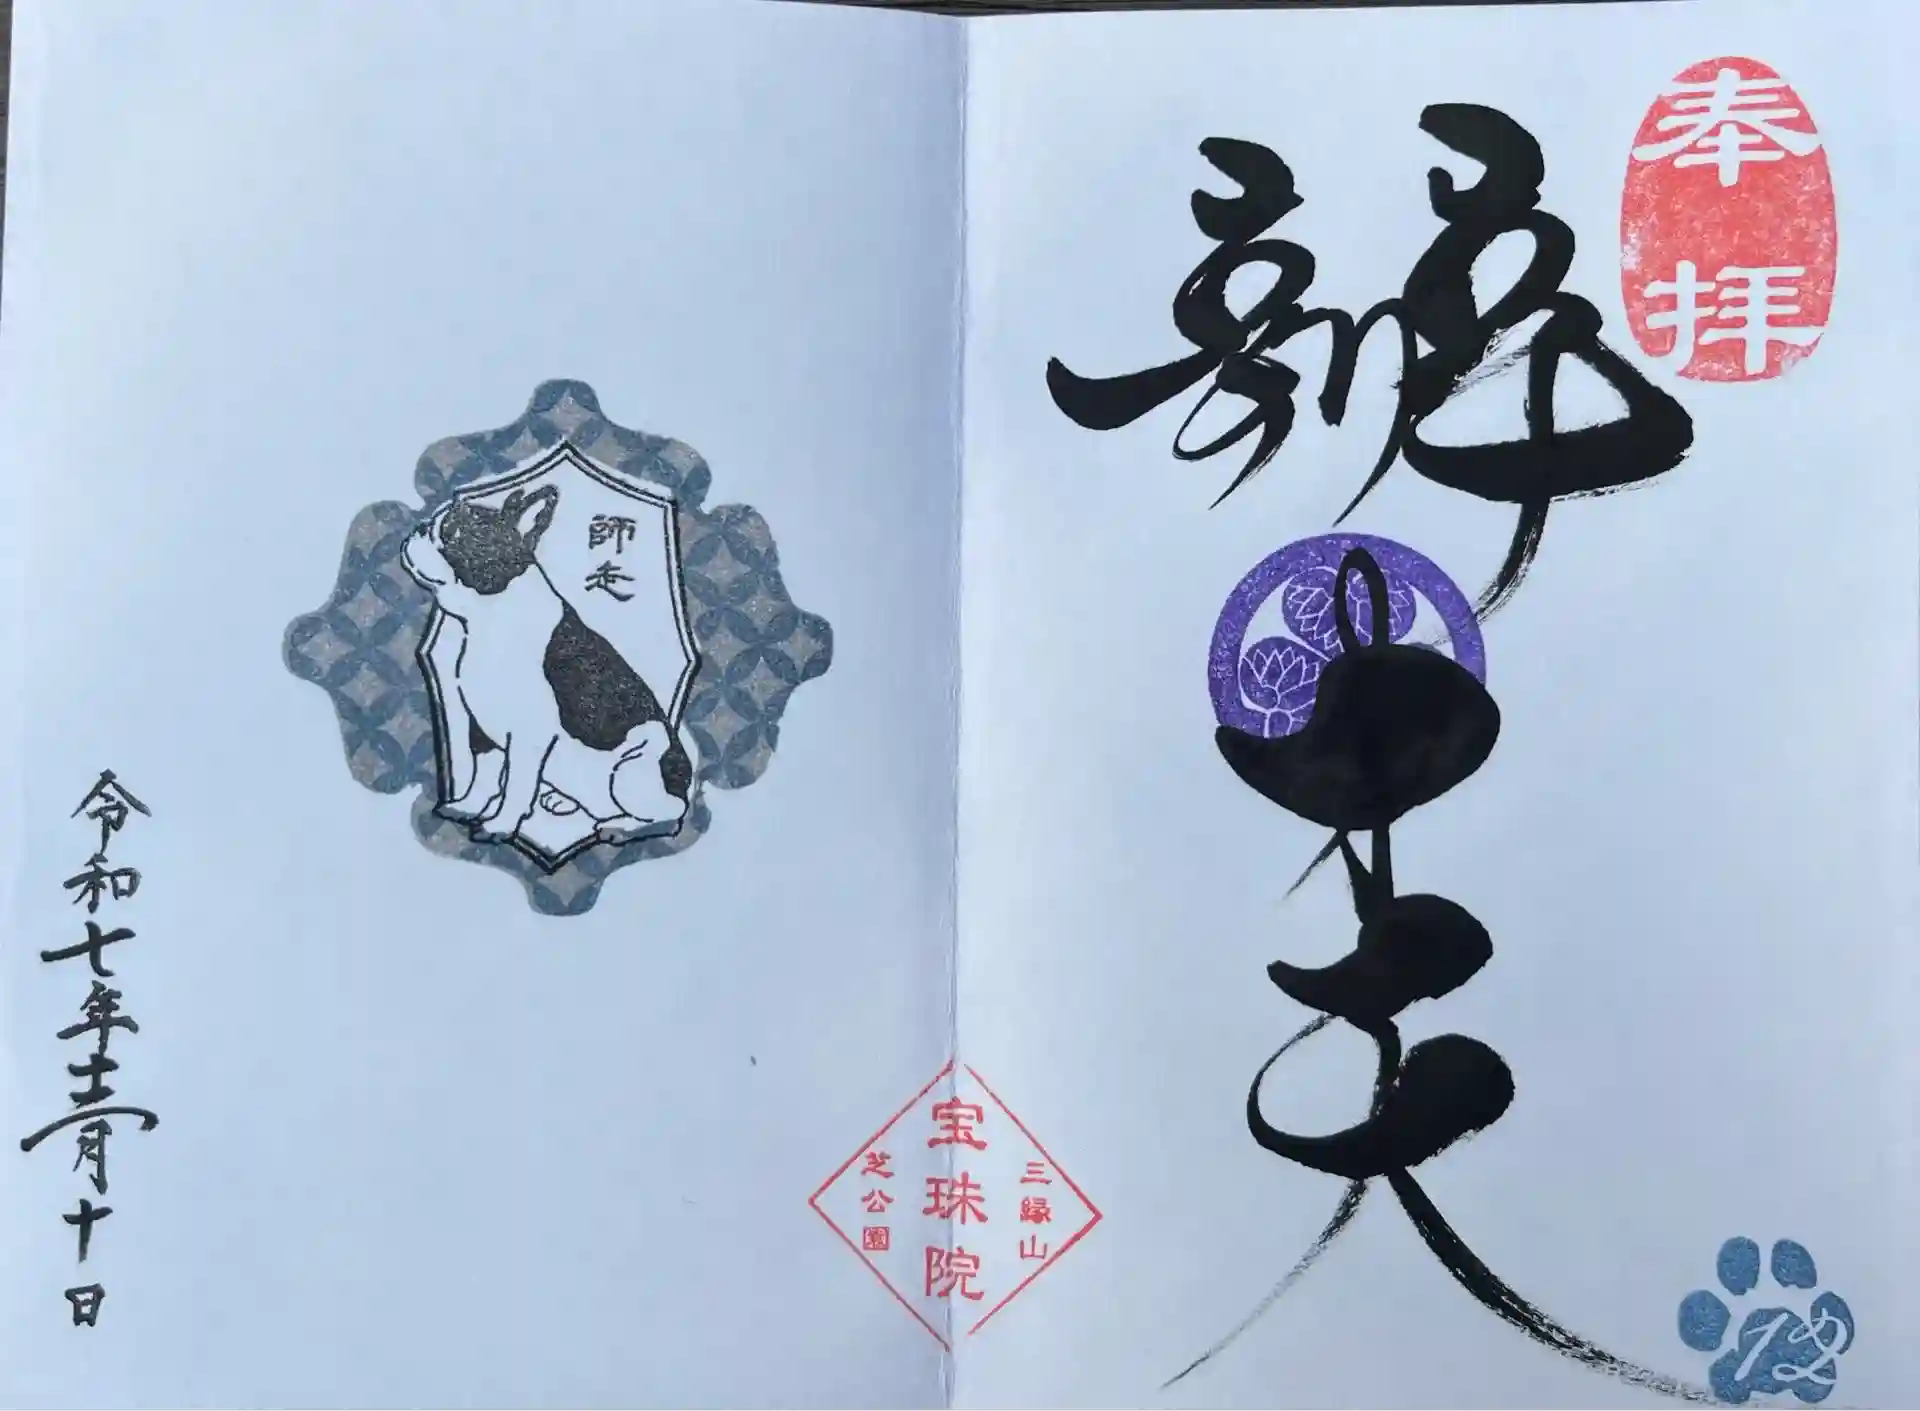 奉拝
辨才天
師走
三縁山
宝珠院
芝公園
令和七年十二月十日